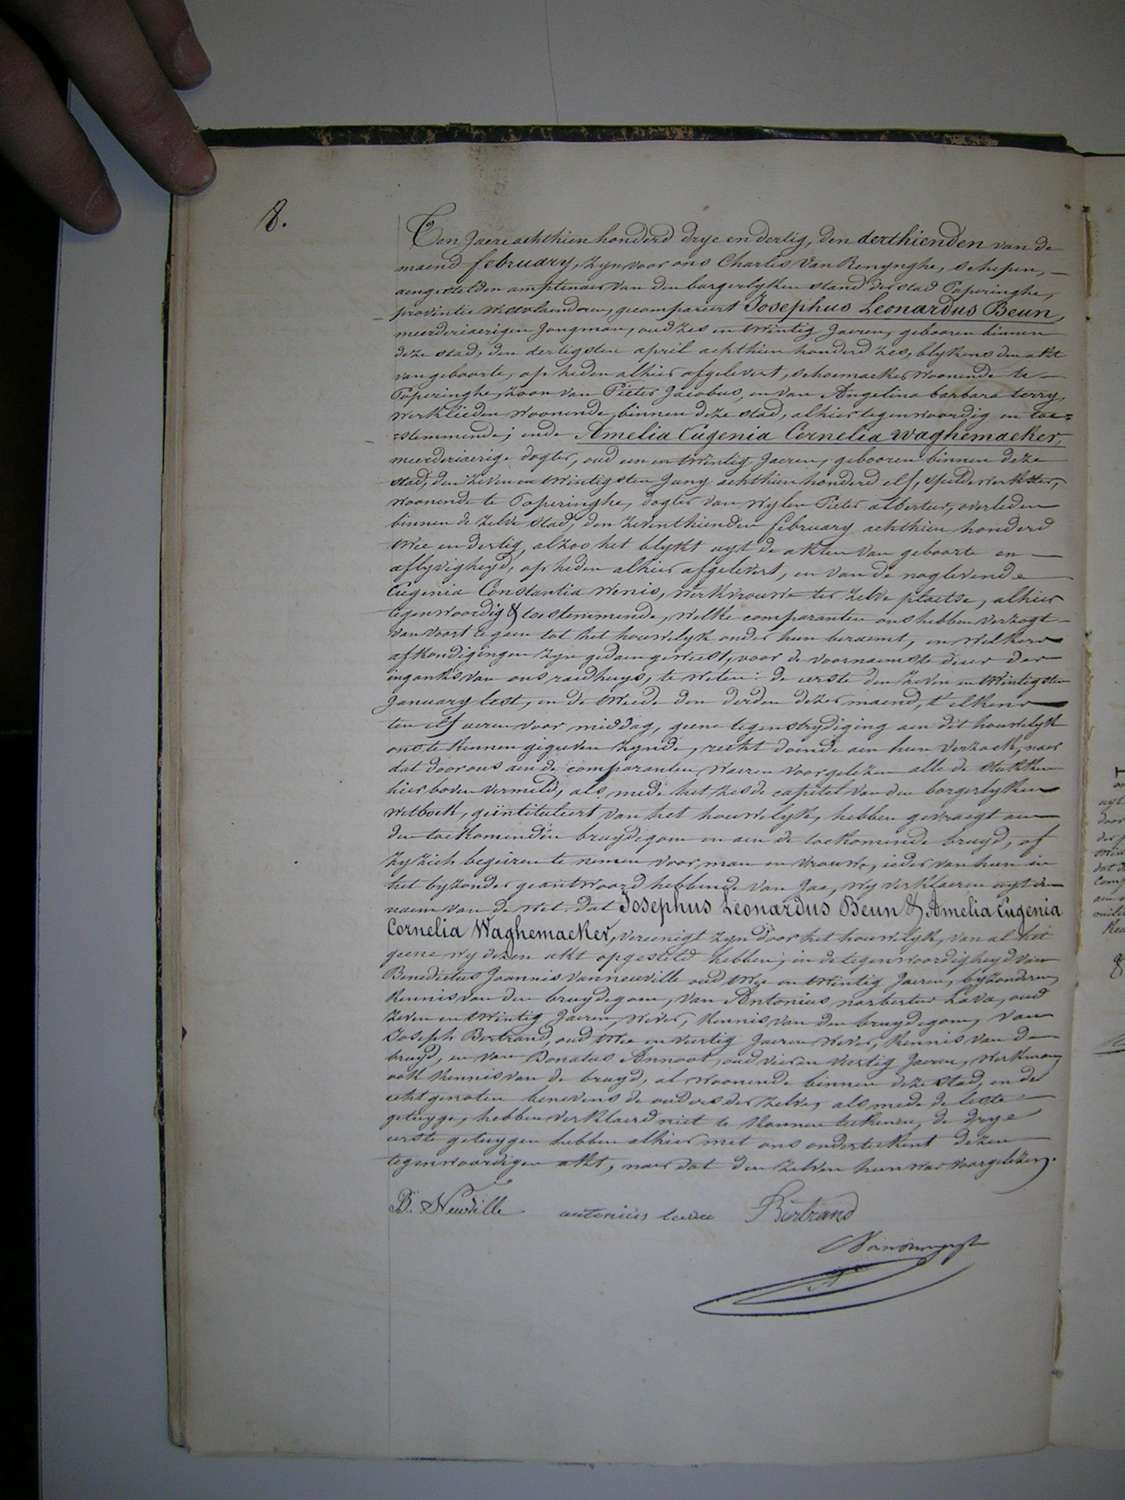 8.
Ten Jaere achthien honderd drye en dertig, den derthienden van de
maend february, zyn voor ons Charles Van Renynghe, schepen,
aengestelden amptenaer van den borgerlyken stand der stad Poperinghe,
provintie Westvlaenderen, gecompareert Josephus Leonardus Beun,
meerderjaerigen Jongman, oud zes en twintig Jaeren, gebooren binnen
deze stad, den dertigsten april achthien honderd zes, blykens den akt
van geboorte, op heden alhier afgelevert, schoemaeker woonende te
Poperinghe, zoon van Pieter Jacobus, en van Angelina barbara terry,
werklieden woonende binnen deze stad, alhier tegenwoordig en toe=
=stemmende; ende Amelia Eugenia Cornelia Waghemaeker,
meerderjaerige dogter, oud een en twintig Jaeren, gebooren binnen deze
stad, den zeven en twintigsten Juny achthien honderd elf, spellewerkster,
woonende te Poperinghe, dogter van wylen Pieter albertus, overleden
binnen de zelve stad, den zeventhienden february achthien honderd
twee en dertig, alzoo het blykt uyt de akten van geboorte en
aflyvigheyd, op heden alhier afgelevert, en van de naglevende
Eugenia Constantia Wenis, werkvrouwe ter zelve plaetse, alhier
tegenwoordig & toestemmende, welke comparanten ons hebben verzogt
van voort te gaen tot het houwelyk onder hun beraemt, en welkers
afkondigingen zyn gedaen geweest, voor de voornaemste deur der
ingank van ons raedhuys, te weten: de eerste den zeven en twintigsten
January lest, en de tweede den derden dezer maend, t'elkens
ten elf ueren voor middag, geene tegenstrydiging aen dit houwelyk
ons te kennen gegeven zynde, recht doende aen hun verzoek, naer
dat door ons aen de comparanten waeren voorgelezen alle de stukken
hier boven vermeld, als mede het zesde capitel van den borgerlyken
wetboek, geïntituleert van het houwelyk, hebben gevraegt aen
den toekomenden bruydegom en aen de toekomende bruyd, of
zy zich begeiren te nemen voor man en vrouwe, ieder van hun in
het byzonder geantwoord hebbende van Jaa, wy verklaeren uyt den
naem van de wet, dat Josephus Leonardus Beun & Amelia Eugenia
Cornelia Waghemaeker, vereenigt zyn door het houwelyk, van al het
geene wy dezen akt opgesteld hebben, in de tegenwoordigheyd van
Benedictus Joannis Van neuville oud twee en twintig Jaeren, byzonderen
kennis van den bruydegom, van Antonius norbertus Lava, oud
zeven en twintig Jaeren, wever, kennis van den bruydegom, van
Joseph Bertrand, oud twee en veertig Jaeren wever, kennis van de
bruyd, en van Donatus Annoot, oud vier en veertig Jaeren, werkman
ook kennis van de bruyd, al woonende binnen deze stad, en de
echtgenoten benevens de ouders der zelve, als mede de leste
getuyge, hebben verklaerd niet te konnen teekenen, de drye
eerste getuygen hebben alhier met ons onderteekent dezen
tegenwoordigen akt, naer dat den zelven hun was voorgelezen.
B. Neuville antonius lava Bertrand